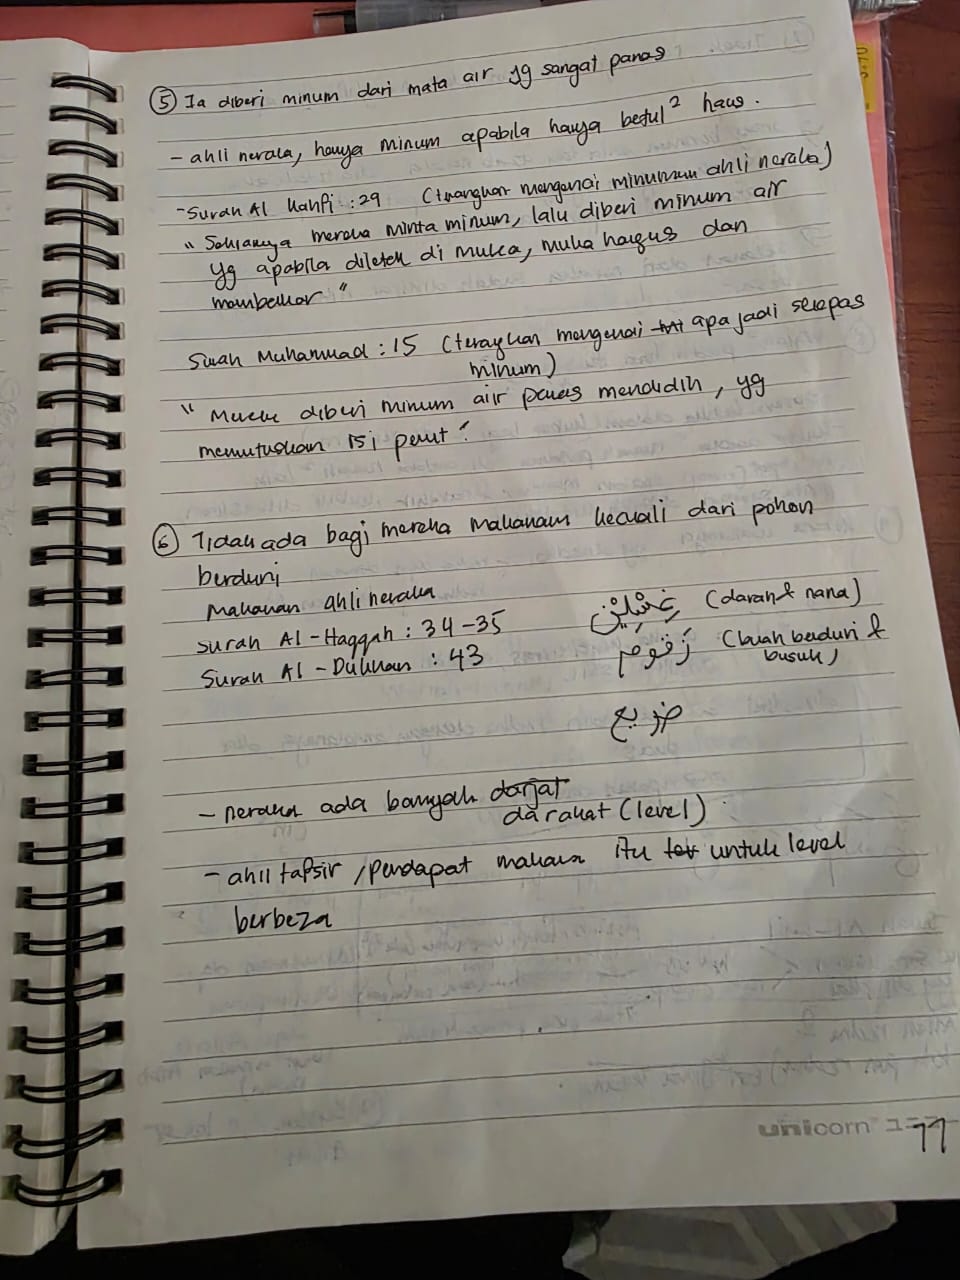 ⑤ Ia diberi minum dari mata air yg sangat panas
- ahli neraka, hanya minum apabila hanya betul² haus.
- Surah Al Kahfi : 29 (terangkan mengenai minuman ahli neraka)
" Sekiranya mereka minta minum, lalu diberi minum air
yg apabila diletak di muka, muka hangus dan
membakar "
Surah Muhammad : 15 (terangkan mengenai apa jadi selepas
minum)
" Mereka diberi minum air panas mendidih, yg
memutuskan isi perut "
⑥ Tidak ada bagi mereka makanan kecuali dari pohon
berduri
Makanan ahli neraka
Surah Al-Haqqah : 34-35 غِسْلِيْن (darah & nana)
Surah Al-Dukhan : 43 زَقُّوم (buah berduri &
busuk)
ضريع
- neraka ada banyak darjat
darakat (level)
- ahli tafsir / pendapat makanan itu untuk level
berbeza
unicorn
77